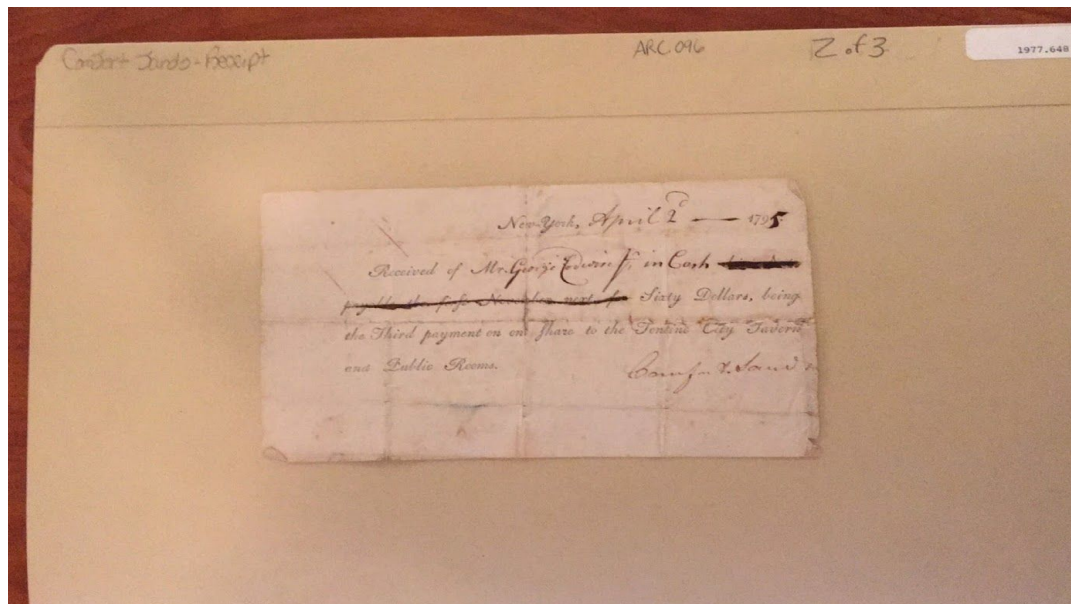 Comfort Sands - Receipt
ARC.096
2 of 3
1977.648
New-York, April 2d — 1795
Received of Mr. George in Cash
payable the first next Sixty Dollars, being
the Third payment on one Share to the Tontine City Tavern
and Public Rooms.
Comfort Sands